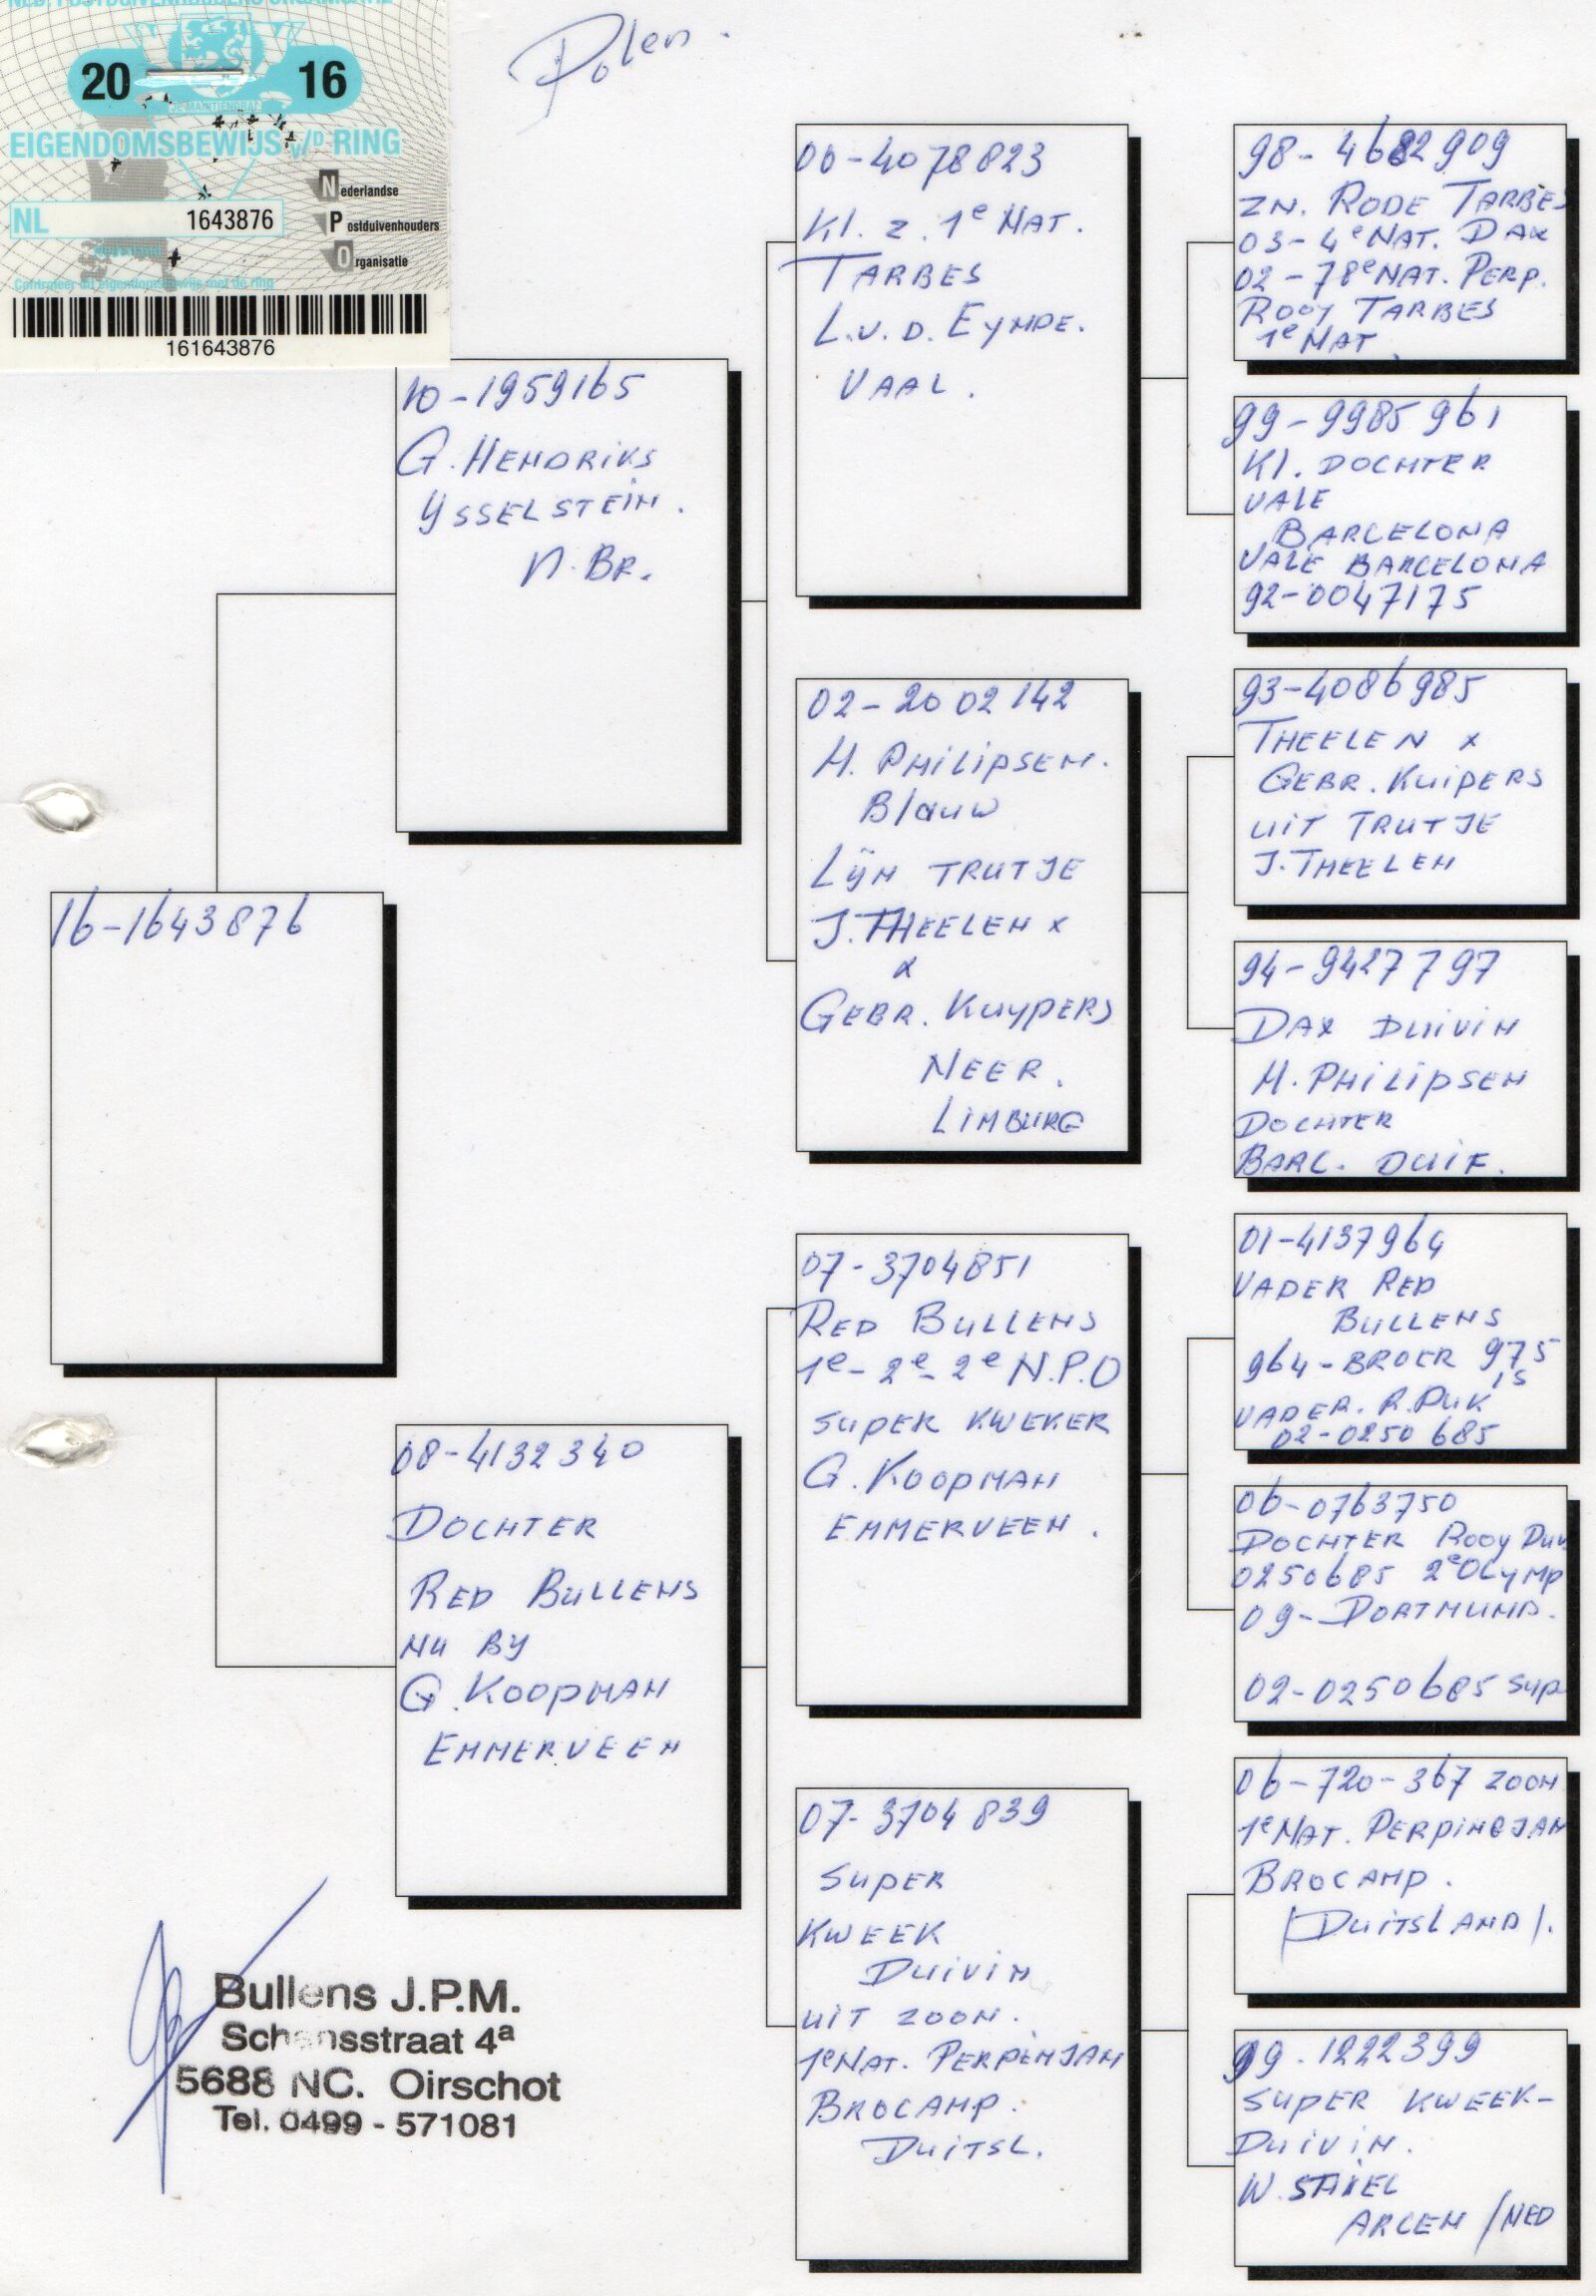 NED. POSTDUIVENHOUDERS ORGANISATIE
20 16
JE MAINTIENDRAI
EIGENDOMSBEWIJS v/D RING
NL 1643876
Nederlandse
Postduivenhouders
Organisatie
Controleer dit eigendomsbewijs met de ring
161643876
Polen.
16-1643876
10-1959165
G. HENDRIKS
YSSELSTEIN.
N. BR.
08-4132340
DOCHTER
RED BULLENS
NU BY
G. KOOPMAN
EMMERVEEN
06-4078823
Kl. z. 1e NAT.
TARBES
L.v.D. EYNDE.
VAAL.
02-2002142
H. PHILIPSEN.
Blauw
LIJN TRUTJE
J. THEELEN x
x
GEBR. KUYPERS
NEER.
LIMBURG
07-3704851
RED BULLENS
1e-2e-2e N.P.O
SUPER KWEKER
G. KOOPMAN
EMMERVEEN.
07-3704839
SUPER
KWEEK
DUIVIN
UIT ZOON.
1e NAT. PERPENJAN
BROCAMP.
DUITSL.
98-4682909
ZN. RODE TARBES
03-4e NAT. DAX
02-78e NAT. PERP.
ROOY TARBES
1e NAT.
99-9985961
Kl. DOCHTER
VALE
BARCELONA
VALE BARCELONA
92-0047175
93-4086985
THEELEN x
GEBR. KUIPERS
UIT TRUTJE
J. THEELEN
94-9427797
DAX DUIVIN
H. PHILIPSEN
DOCHTER
BARC. DUIF.
01-4137964
VADER RED
BULLENS
964-BROER 975
IS
VADER. R. PUK
02-0250685
06-0763750
DOCHTER ROOY
0250685 2e OLYMP
09-DORTMUND.
02-0250685 SUP
06-720-367 ZOON
1e NAT. PERPINGJAN
BROCAMP.
(DUITSLAND).
99.1222399
SUPER KWEEK-
DUIVIN.
W. STAKEL
ARCEN /NED
Bullens J.P.M.
Schansstraat 4a
5688 NC. Oirschot
Tel. 0499 - 571081